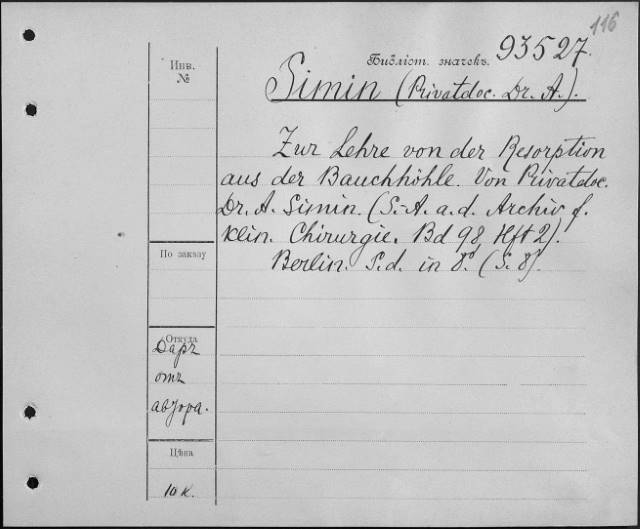 116
Библіот. значекъ. 93527.
Инв.
№
Simin (Privatdoc. Dr. A.).
Zur Lehre von der Resorption
aus der Bauchhöhle. Von Privatdoc.
Dr. A. Simin. (S.-A. a. d. Archiv f.
klin. Chirurgie. Bd 98, Hft 2).
Berlin. S. d. in 8°. (S. 8).
По заказу
Откуда
Даръ
отъ
автора.
Цѣна
10 к.